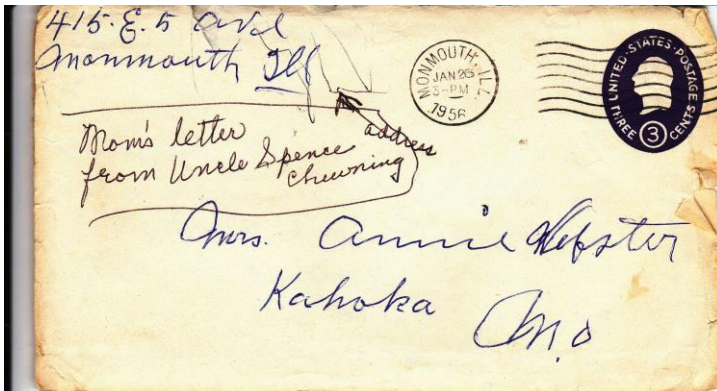 415. E. 5 ave
Monmouth Ill
MONMOUTH, ILL
JAN 26
5-PM
1956
UNITED·STATES·POSTAGE
THREE 3 CENTS
Mom's letter
from Uncle Spence
Chewning
address
Mrs. Annie Webster
Kahoka
Mo